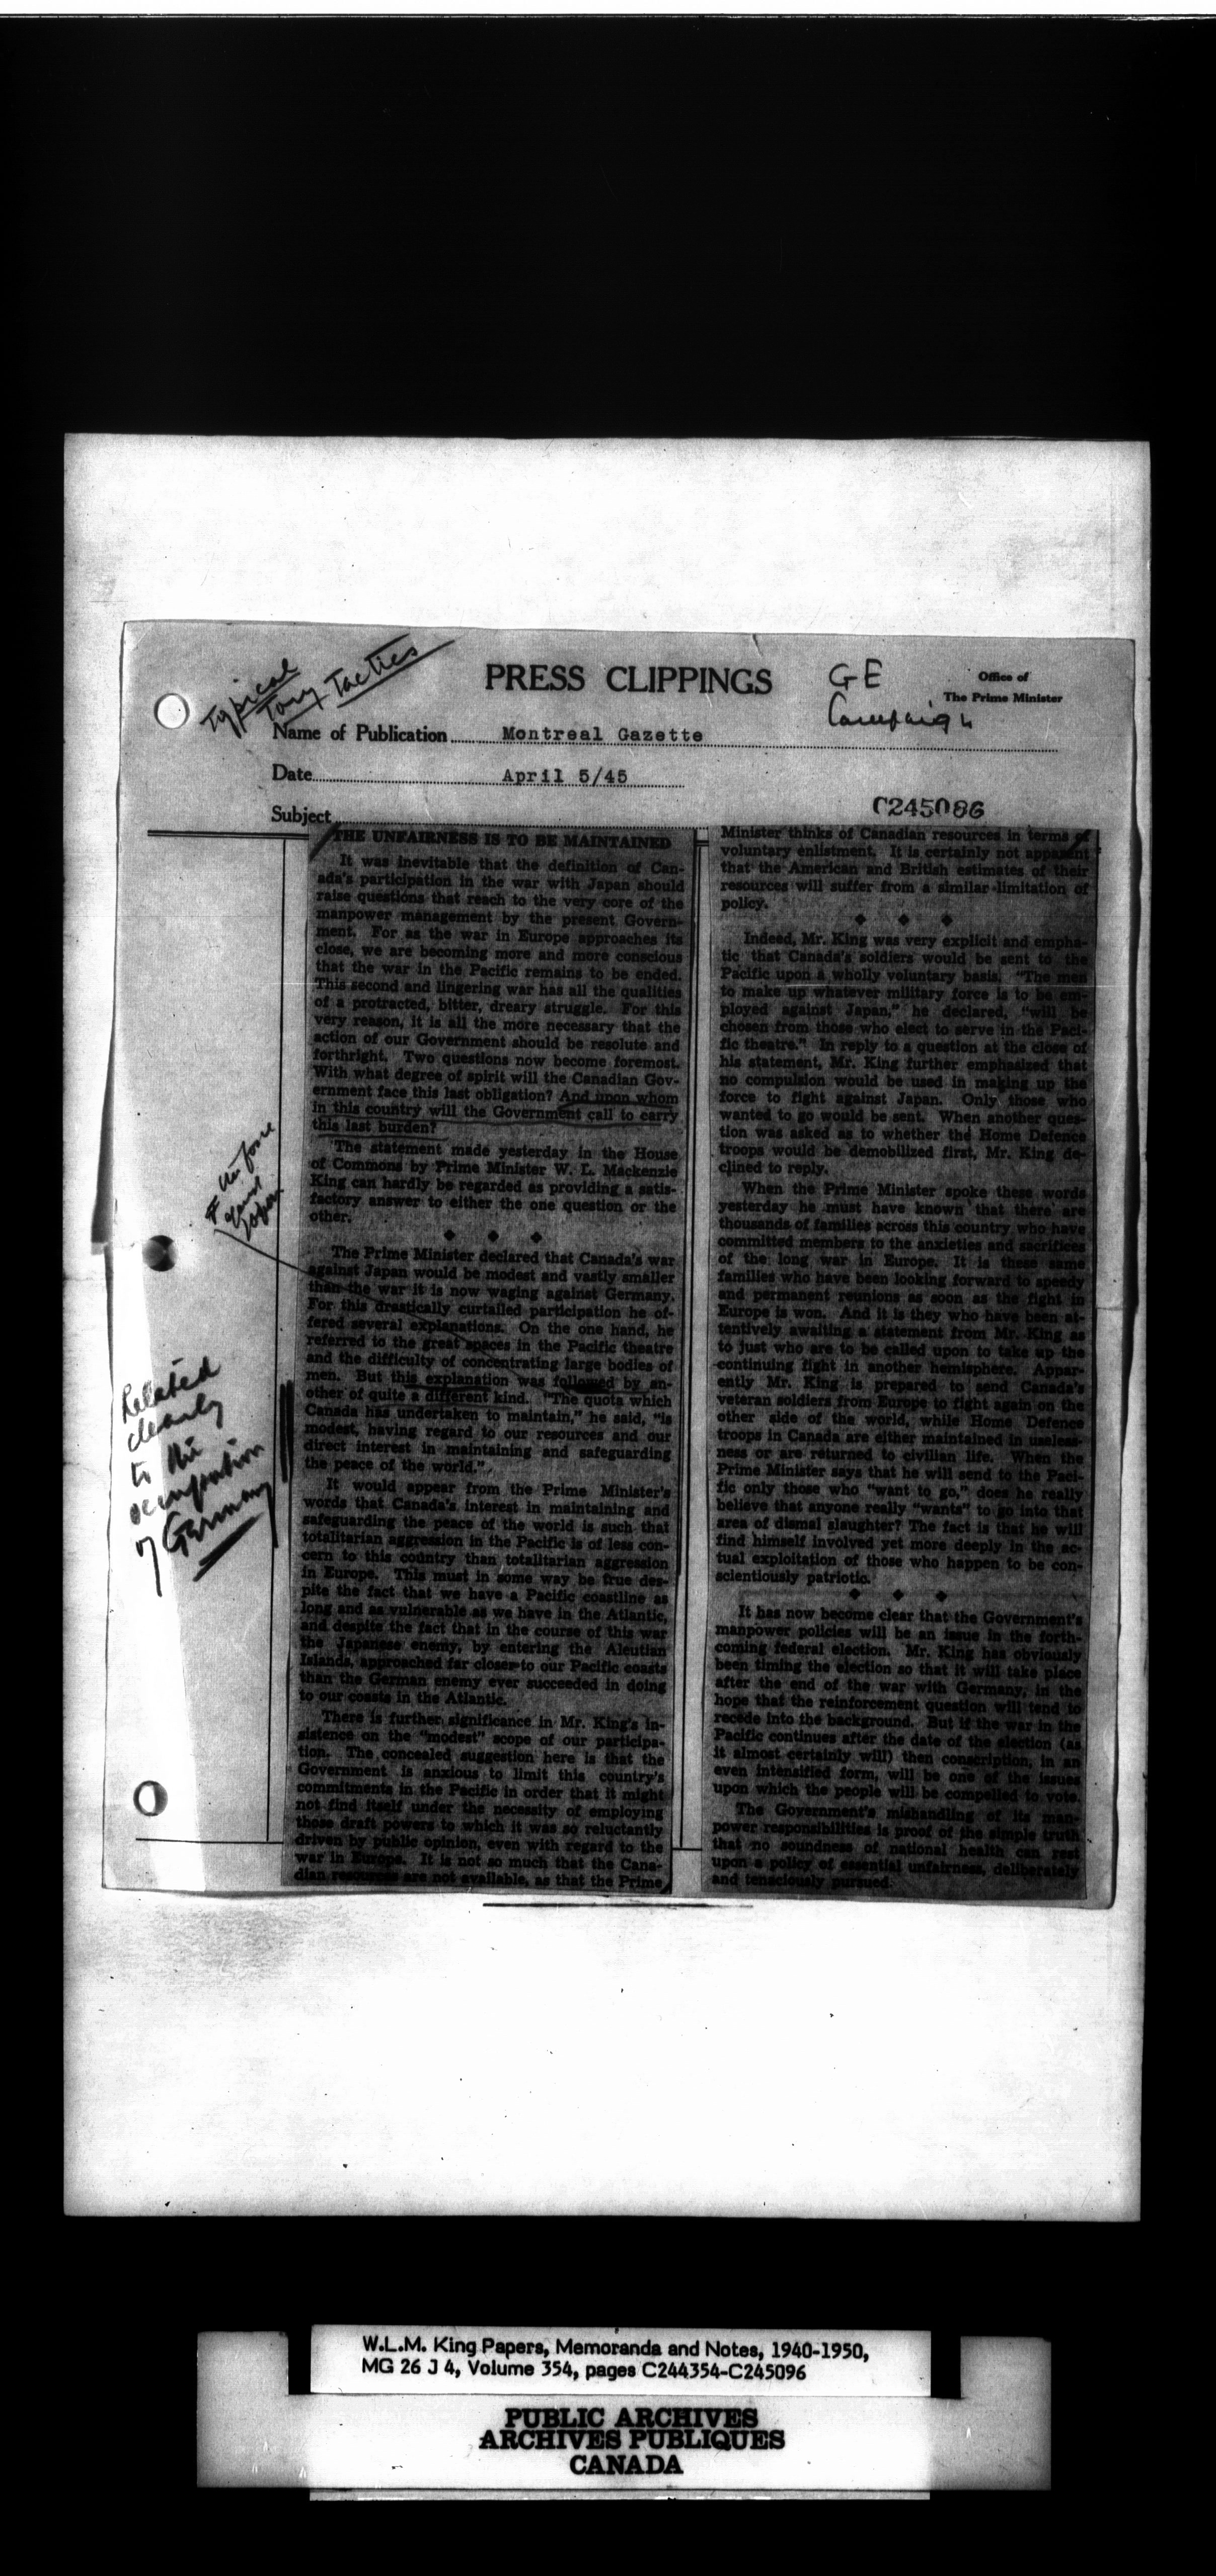 Typical
Tory Tactics
PRESS CLIPPINGS
GE
Campaign
Office of
The Prime Minister
Name of Publication Montreal Gazette
Date April 5/45
C245086
Subject
THE UNFAIRNESS IS TO BE MAINTAINED
It was inevitable that the definition of Can-
ada's participation in the war with Japan should
raise questions that reach to the very core of the
manpower management by the present Govern-
ment. For as the war in Europe approaches its
close, we are becoming more and more conscious
that the war in the Pacific remains to be ended.
This second and lingering war has all the qualities
of a protracted, bitter, dreary struggle. For this
very reason, it is all the more necessary that the
action of our Government should be resolute and
forthright. Two questions now become foremost.
With what degree of spirit will the Canadian Gov-
ernment face this last obligation? And upon whom
in this country will the Government call to carry
this last burden?
The statement made yesterday in the House
of Commons by Prime Minister W. L. Mackenzie
King can hardly be regarded as providing a satis-
factory answer to either the one question or the
other.
force
against
Japan
The Prime Minister declared that Canada's war
against Japan would be modest and vastly smaller
than the war it is now waging against Germany.
For this drastically curtailed participation he of-
fered several explanations. On the one hand, he
referred to the great spaces in the Pacific theatre
and the difficulty of concentrating large bodies of
men. But this explanation was followed by an-
other of quite a different kind. "The quota which
Canada has undertaken to maintain," he said, "is
modest, having regard to our resources and our
direct interest in maintaining and safeguarding
the peace of the world."
Related
clearly
to the
occupation
of Germany
It would appear from the Prime Minister's
words that Canada's interest in maintaining and
safeguarding the peace of the world is such that
totalitarian aggression in the Pacific is of less con-
cern to this country than totalitarian aggression
in Europe. This must in some way be true des-
pite the fact that we have a Pacific coastline as
long and as vulnerable as we have in the Atlantic,
and despite the fact that in the course of this war
the Japanese enemy, by entering the Aleutian
Islands, approached far closer to our Pacific coasts
than the German enemy ever succeeded in doing
to our coasts in the Atlantic.
There is further significance in Mr. King's in-
sistence on the "modest" scope of our participa-
tion. The concealed suggestion here is that the
Government is anxious to limit this country's
commitments in the Pacific in order that it might
not find itself under the necessity of employing
those draft powers to which it was so reluctantly
driven by public opinion, even with regard to the
war in Europe. It is not so much that the Cana-
dian resources are not available, as that the Prime
Minister thinks of Canadian resources in terms of
voluntary enlistment. It is certainly not apparent
that the American and British estimates of their
resources will suffer from a similar limitation of
policy.
Indeed, Mr. King was very explicit and empha-
tic that Canada's soldiers would be sent to the
Pacific upon a wholly voluntary basis. "The men
to make up whatever military force is to be em-
ployed against Japan," he declared, "will be
chosen from those who elect to serve in the Paci-
fic theatre." In reply to a question at the close of
his statement, Mr. King further emphasized that
no compulsion would be used in making up the
force to fight against Japan. Only those who
wanted to go would be sent. When another ques-
tion was asked as to whether the Home Defence
troops would be demobilized first, Mr. King de-
clined to reply.
When the Prime Minister spoke these words
yesterday he must have known that there are
thousands of families across this country who have
committed members to the anxieties and sacrifices
of the long war in Europe. It is these same
families who have been looking forward to speedy
and permanent reunions as soon as the fight in
Europe is won. And it is they who have been at-
tentively awaiting a statement from Mr. King as
to just who are to be called upon to take up the
continuing fight in another hemisphere. Appar-
ently Mr. King is prepared to send Canada's
veteran soldiers from Europe to fight again on the
other side of the world, while Home Defence
troops in Canada are either maintained in useless-
ness or are returned to civilian life. When the
Prime Minister says that he will send to the Paci-
fic only those who "want to go," does he really
believe that anyone really "wants" to go into that
area of dismal slaughter? The fact is that he will
find himself involved yet more deeply in the ac-
tual exploitation of those who happen to be con-
scientiously patriotic.
It has now become clear that the Government's
manpower policies will be an issue in the forth-
coming federal election. Mr. King has obviously
been timing the election so that it will take place
after the end of the war with Germany, in the
hope that the reinforcement question will tend to
recede into the background. But if the war in the
Pacific continues after the date of the election (as
it almost certainly will) then conscription, in an
even intensified form, will be one of the issues
upon which the people will be compelled to vote.
The Government's mishandling of its man-
power responsibilities is proof of the simple truth
that no soundness of national health can rest
upon a policy of essential unfairness, deliberately
and tenaciously pursued.
W.L.M. King Papers, Memoranda and Notes, 1940-1950,
MG 26 J 4, Volume 354, pages C244354-C245096
PUBLIC ARCHIVES
ARCHIVES PUBLIQUES
CANADA